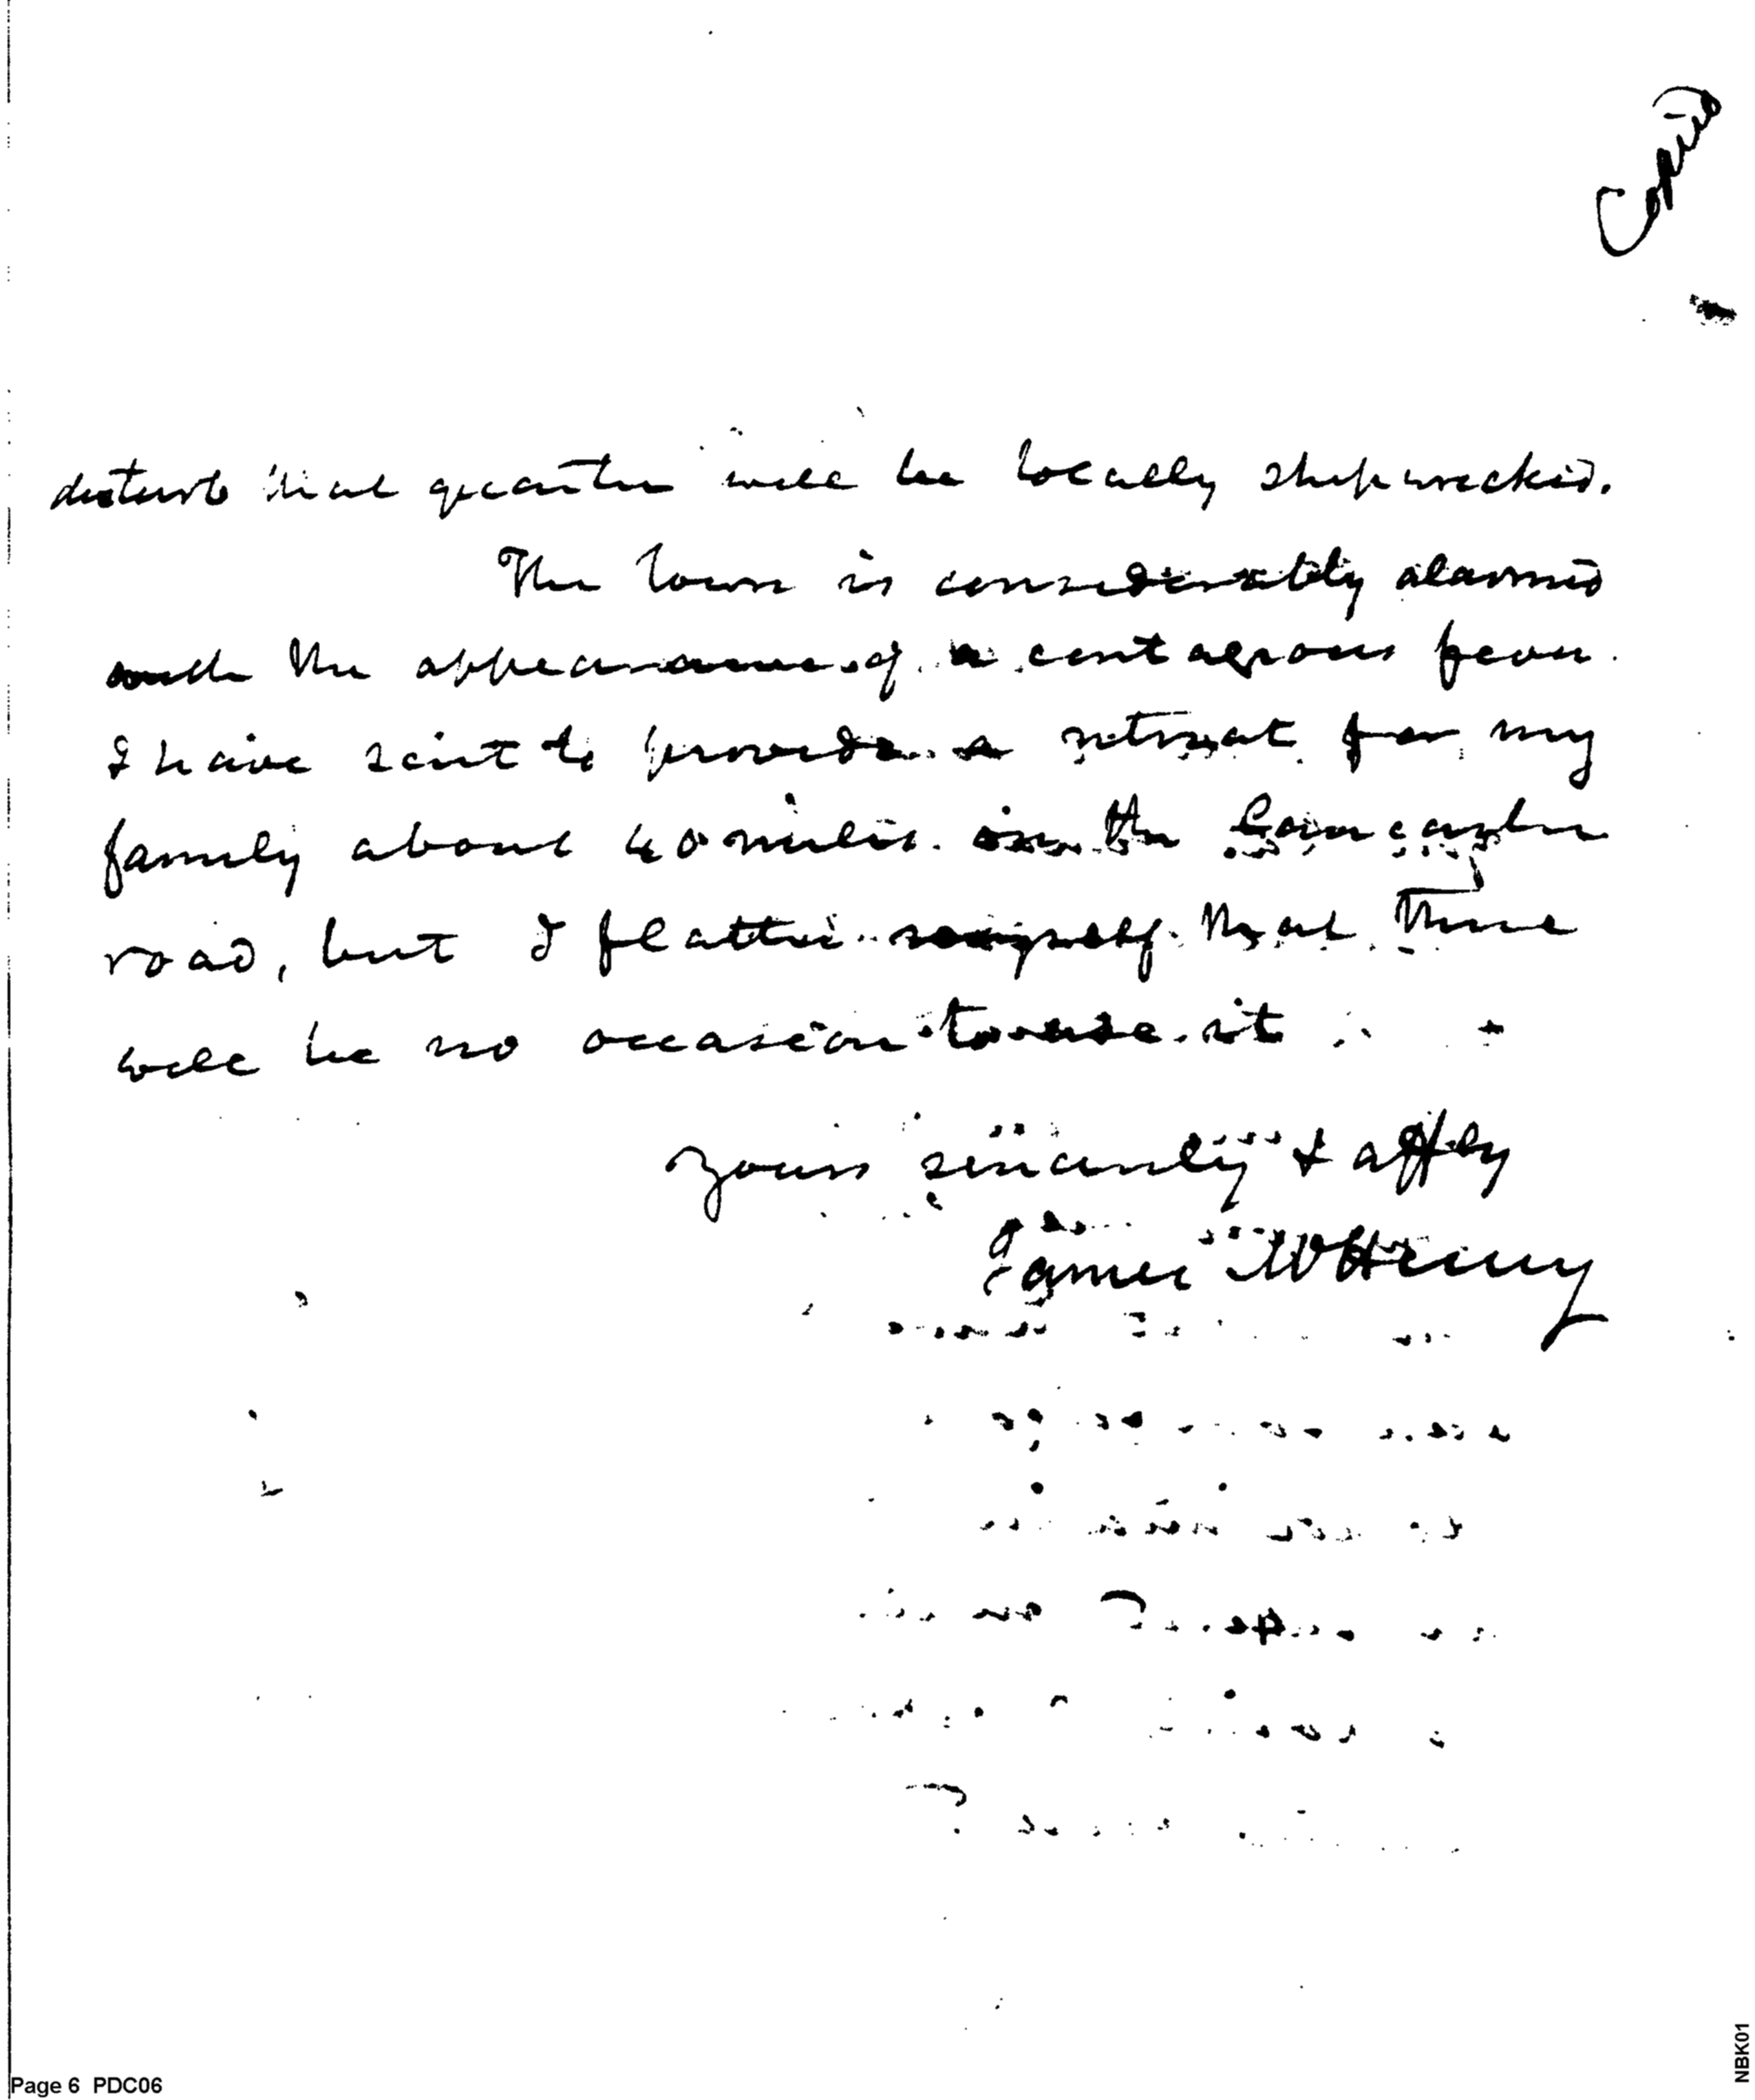 Copied
disturb that quarter will be locally shipwrecked.
The town is considerably alarmed
with the appearance of a contagious fever.
I have sent to provide a retreat for my
family about 40 miles on the Lancaster
road, but I flatter myself that there
will be no occasion to use it.
Yours sincerely & affly
James McHenry
Page 6 PDC06
NBK01